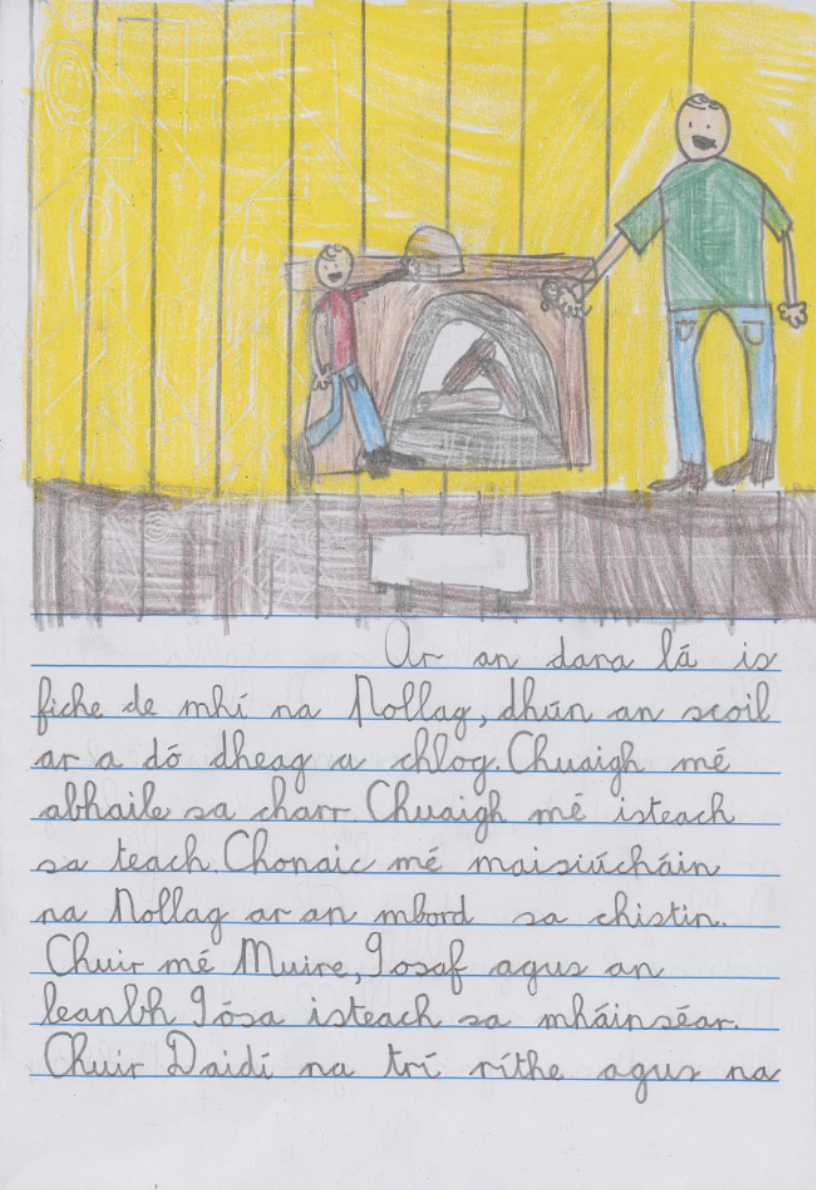 Ar an dara lá is
fiche de mhí na Nollag, dhún an scoil
ar a dó dheag a chlog. Chuaigh mé
abhaile sa charr. Chuaigh mé isteach
sa teach. Chonaic mé maisiúcháin
na Nollag ar an mbord sa chistin.
Chuir mé Muire, Iosaf agus an
leanbh Iósa isteach sa mháinséar.
Chuir Daidí na trí ríthe agus na